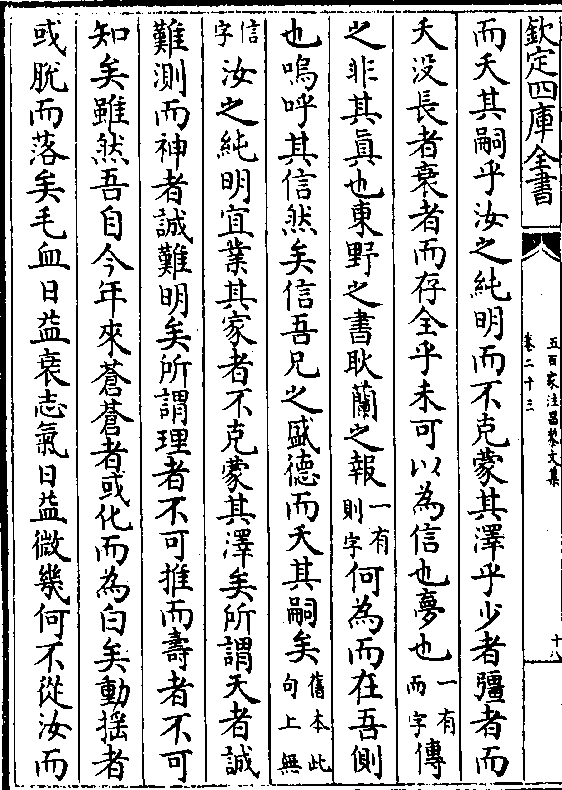 欽定四庫全書
五百家注昌黎文集
卷二十三
十八
而夭其嗣乎汝之純明而不克蒙其澤乎少者彊者而
夭没長者衰者而存全乎未可以為信也夢也一有而字傳
之非其真也東野之書耿蘭之報一有則字何為而在吾側
也嗚呼其信然矣信吾兄之盛德而夭其嗣矣舊本此句上無
信字汝之純明宜業其家者不克蒙其澤矣所謂天者誠
難測而神者誠難明矣所謂理者不可推而壽者不可
知矣雖然吾自今年來蒼蒼者或化而為白矣動揺者
或脫而落矣毛血日益衰志氣日益微幾何不從汝而